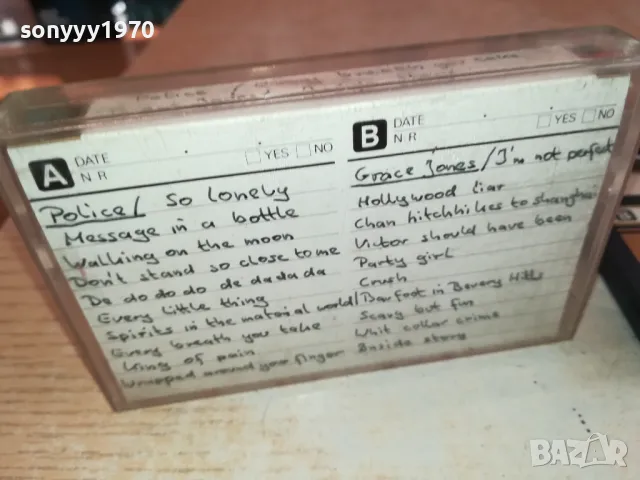 sonyyy1970
A DATE
N R
YES NO
Police / So lonely
Message in a bottle
Walking on the moon
Don't stand so close to me
De do do do de da da da
Every little thing
Spirits in the material world /
Every breath you take
King of pain
Wrapped around your finger
B DATE
N R
YES NO
Grace Jones / I'm not perfect
Hollywood liar
Chan hitchhikes to shanghai
Victor should have been
Party girl
Crush
Barfoot in Bevery Hills
Scary but fun
Whit collar crime
Inside story
BAZAR